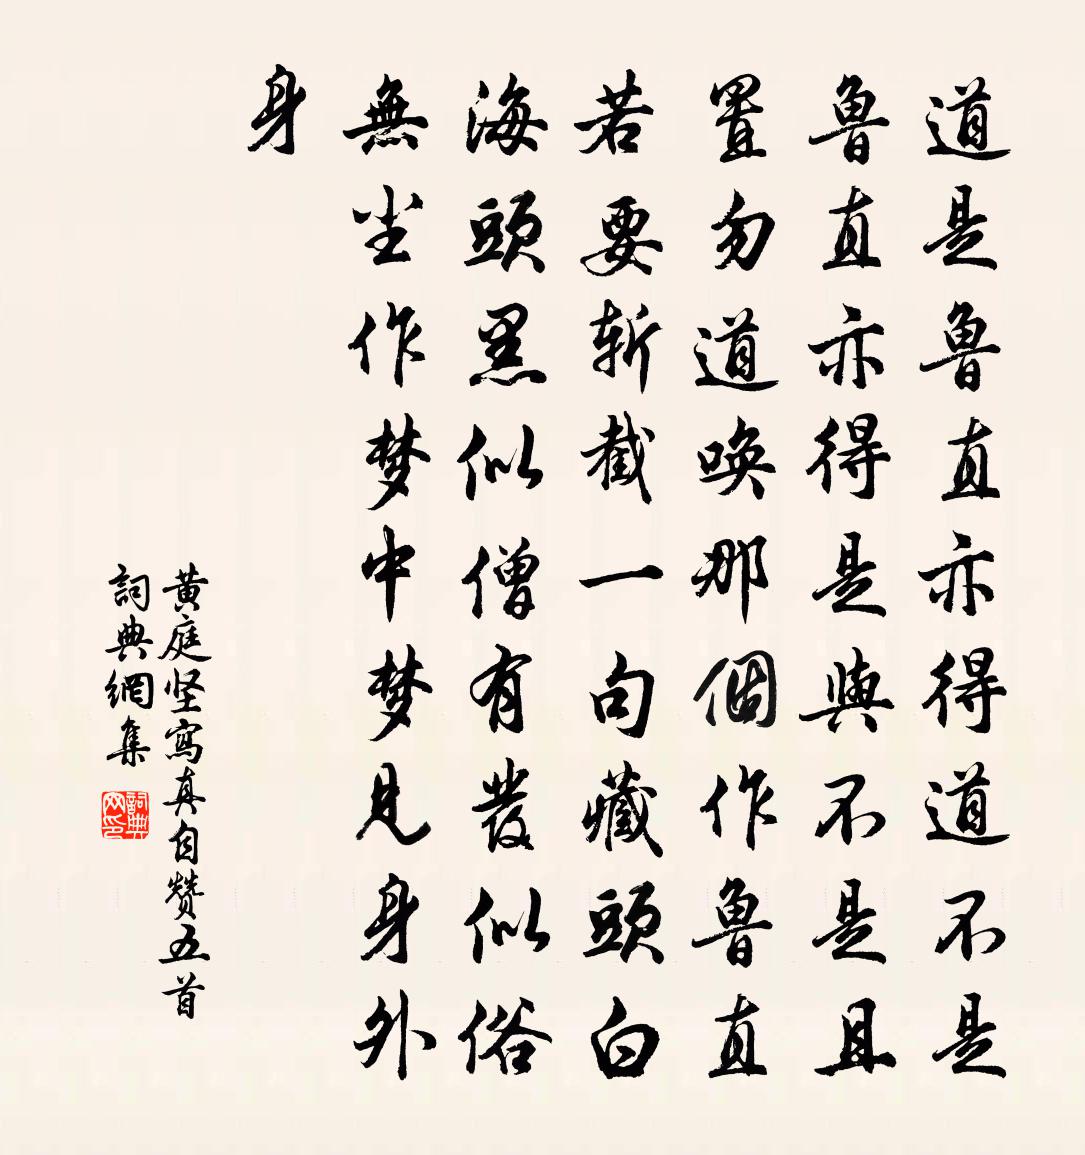 道是魯直亦得道不是
魯直亦得是與不是且
置勿道喚那個作魯直
若要斬截一句藏頭白
海頭黑似僧有發似俗
無尘作梦中梦見身外
身
黄庭坚寫真自赞五首
詞典網集
詞典网印